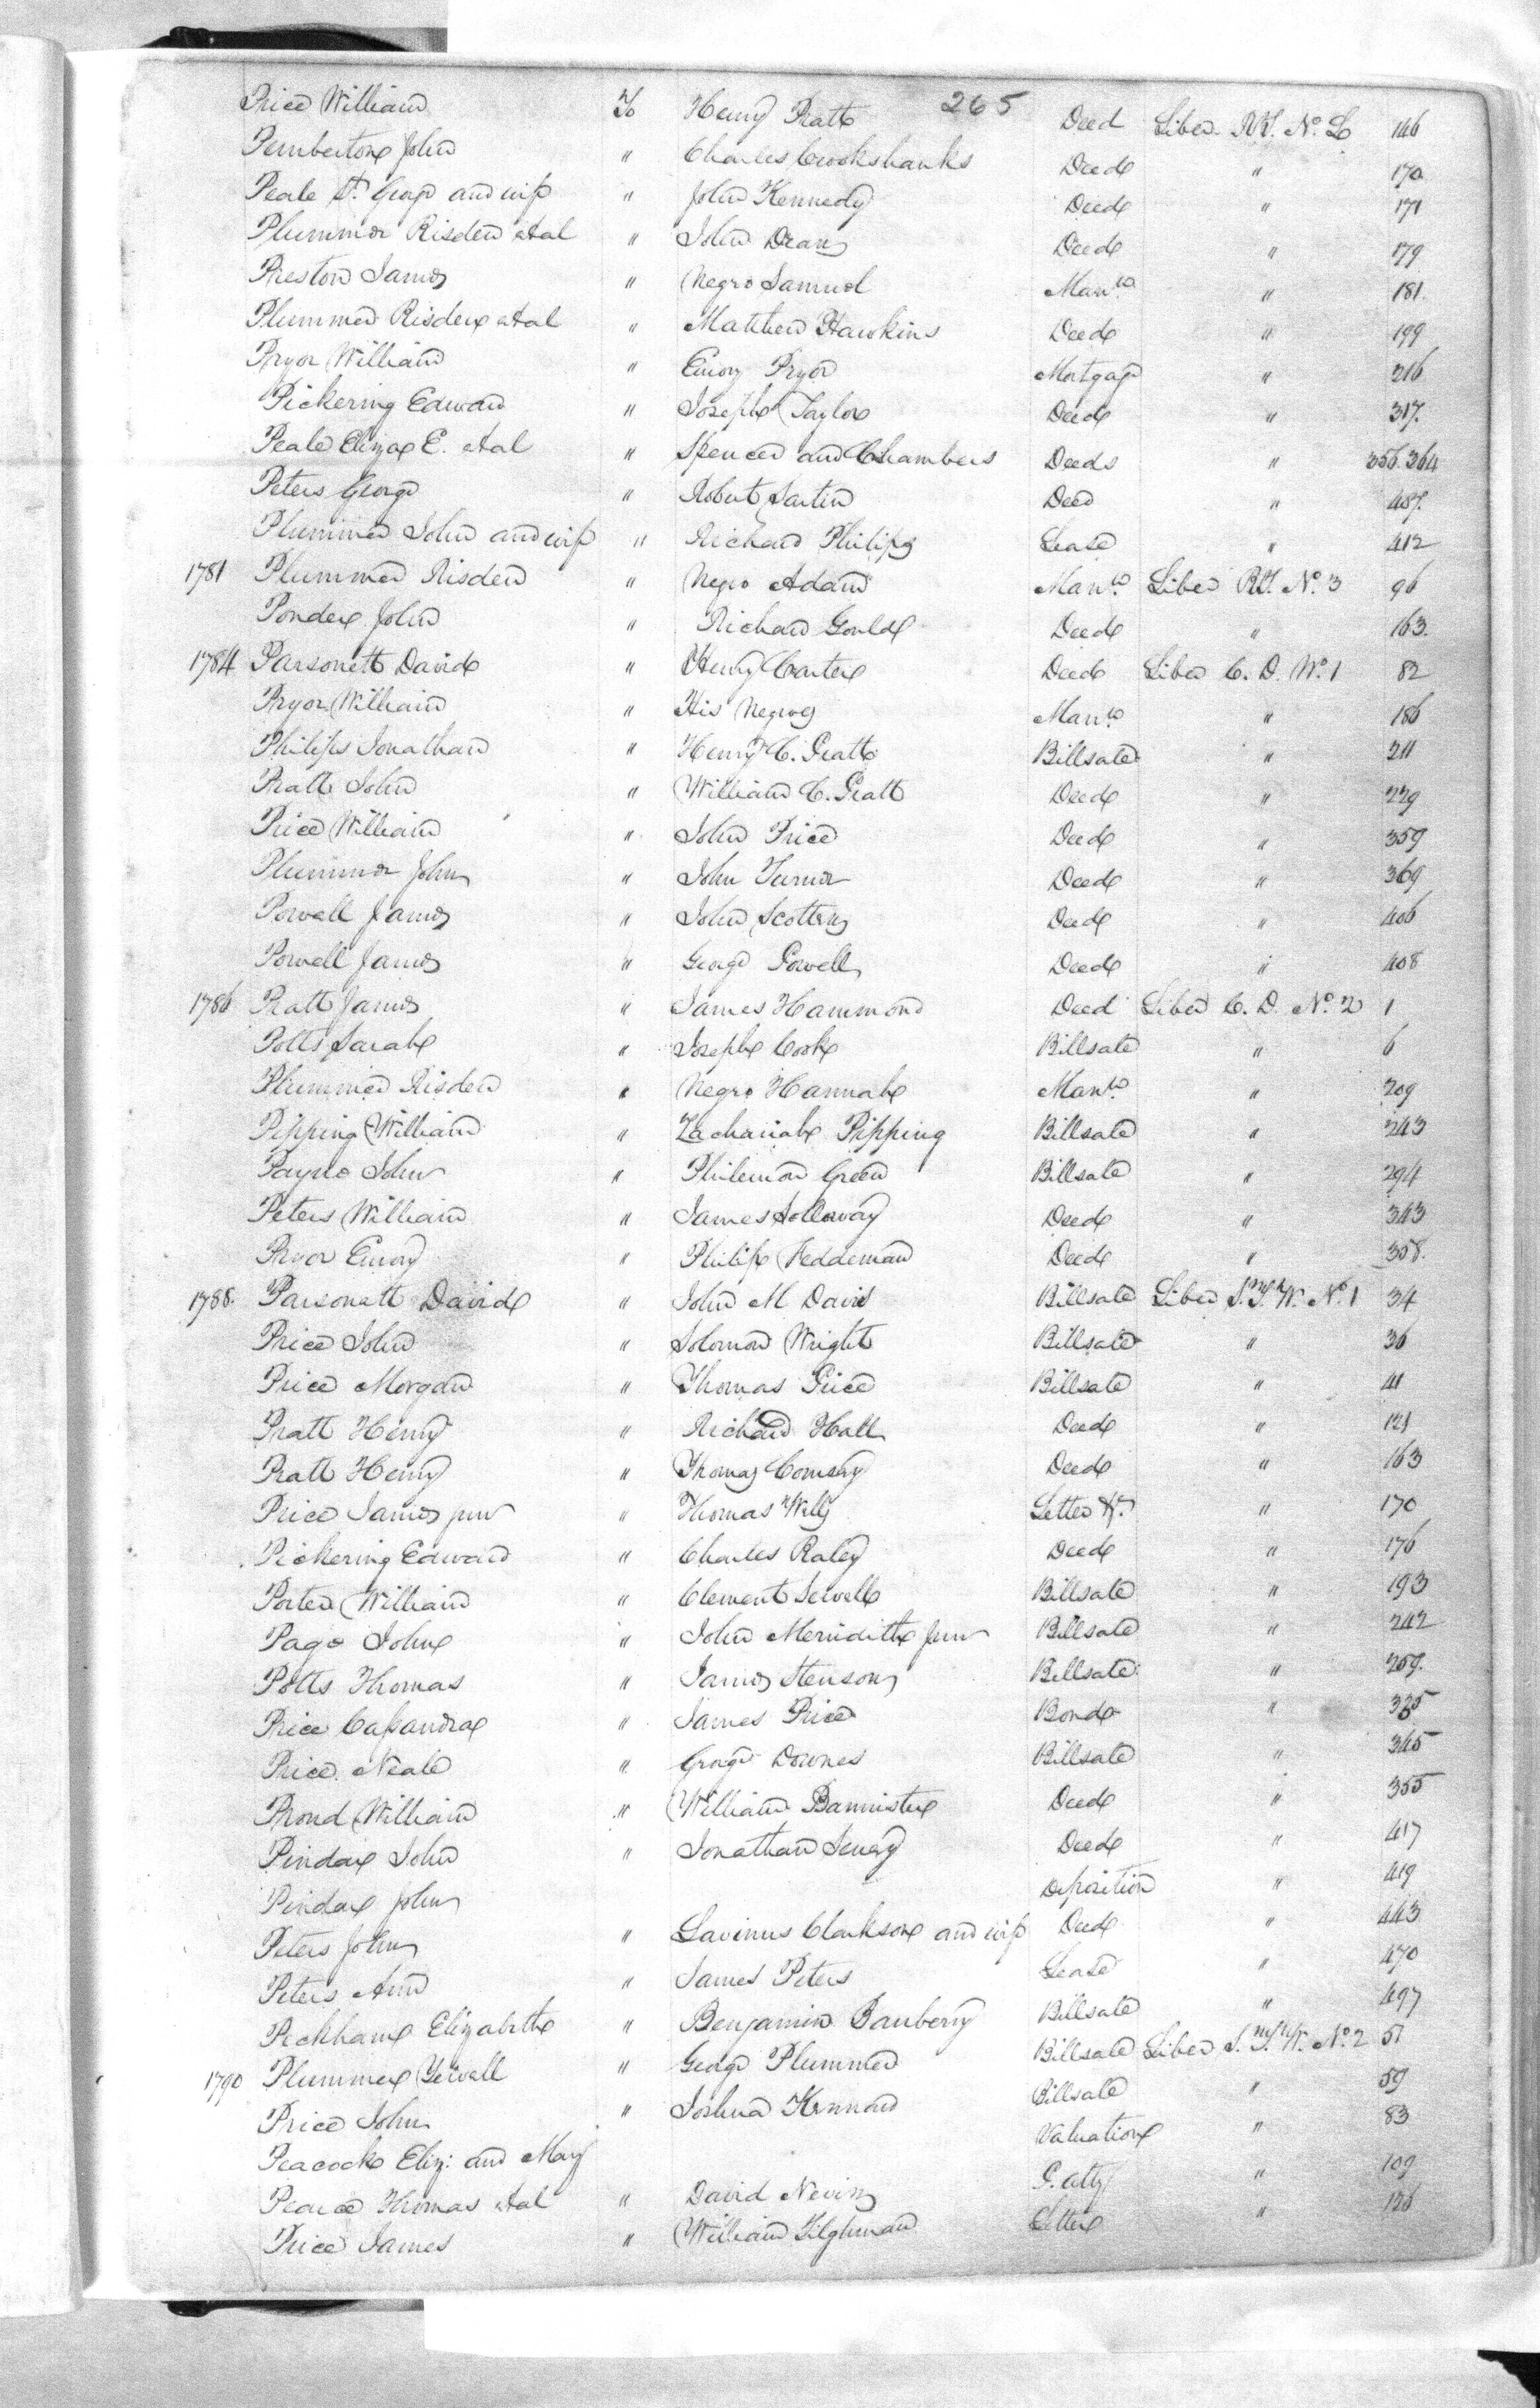 265
Price William To Henry Pratt Deed Liber R.T. No. L 146
Pemberton John " Charles Crookshanks Deed " 170
Peale St. George and wife " John Kennedy Deed " 171
Plummer Risden et al " John Dean Deed " 179
Preston James " Negro Samuel Man.n " 181
Plummer Risden et al " Matthew Hawkins Deed " 199
Pryor William " Emory Pryor Mortgage " 216
Pickering Edward " Joseph Taylor Deed " 317
Peale Eliza E. et al " Spencer and Chambers Deeds " 356.364
Peters George " Robert Sartin Deed " 407
Plummer John and wife " Richard Philips Lease " 412
1781 Plummer Risden " Negro Adam Man.n Liber R.T. No. 3 96
Ponder John " Richard Gould Deed " 163
1784 Parsonett David " Henry Carter Deed Liber C. D. No. 1 82
Pryor William " His Negroes Man.n " 186
Philips Jonathan " Henry C. Pratt Billsale " 211
Pratt John " William C. Pratt Deed " 229
Price William " John Price Deed " 359
Plummer John " John Turner Deed " 369
Powell James " John Scotten Deed " 406
Powell James " George Powell Deed " 408
1786 Pratt James " James Hammond Deed Liber C. D. No. 2 1
Potts Sarah " Joseph Cook Billsale " 6
Plummer Risden " Negro Hannah Man.n " 209
Pipping William " Zachariah Pipping Billsale " 243
Payne John " Philemon Green Billsale " 294
Peters William " James Holloway Deed " 343
Pryor Emory " Philip Feddeman Deed " 358
1788 Parsonett David " John M Davis Billsale Liber S.T.W. No. 1 34
Price John " Solomon Wright Billsale " 36
Price Morgan " Thomas Price Billsale " 41
Pratt Henry " Richard Hall Deed " 121
Pratt Henry " Thomas Comegy Deed " 163
Price James junr " Thomas Wells Letter &c. " 170
Pickering Edward " Charles Raley Deed " 176
Porter William " Clement Sewell Billsale " 193
Page John " John Meridith junr Billsale " 242
Potts Thomas " James Stenson Billsale " 259
Price Cassandra " James Price Bond " 335
Price Neale " George Downes Billsale " 345
Proud William " William Bannister Deed " 355
Pindar John " Jonathan Seney Deed " 417
Pindar John Deposition " 419
Peters John " Lavinus Clarkson and wife Deed " 443
Peters Ann " James Peters Lease " 470
Peckham Elizabeth " Benjamin Banberry Billsale " 497
1790 Plummer Yewall " George Plummer Billsale Liber S.T.W. No. 2 51
Price John " Joshua Kennard Billsale " 59
Peacock Eliz: and Mary Valuation " 83
Pearce Thomas et al " David Nevin P. atty " 109
Price James " William Tilghman Letter " 126